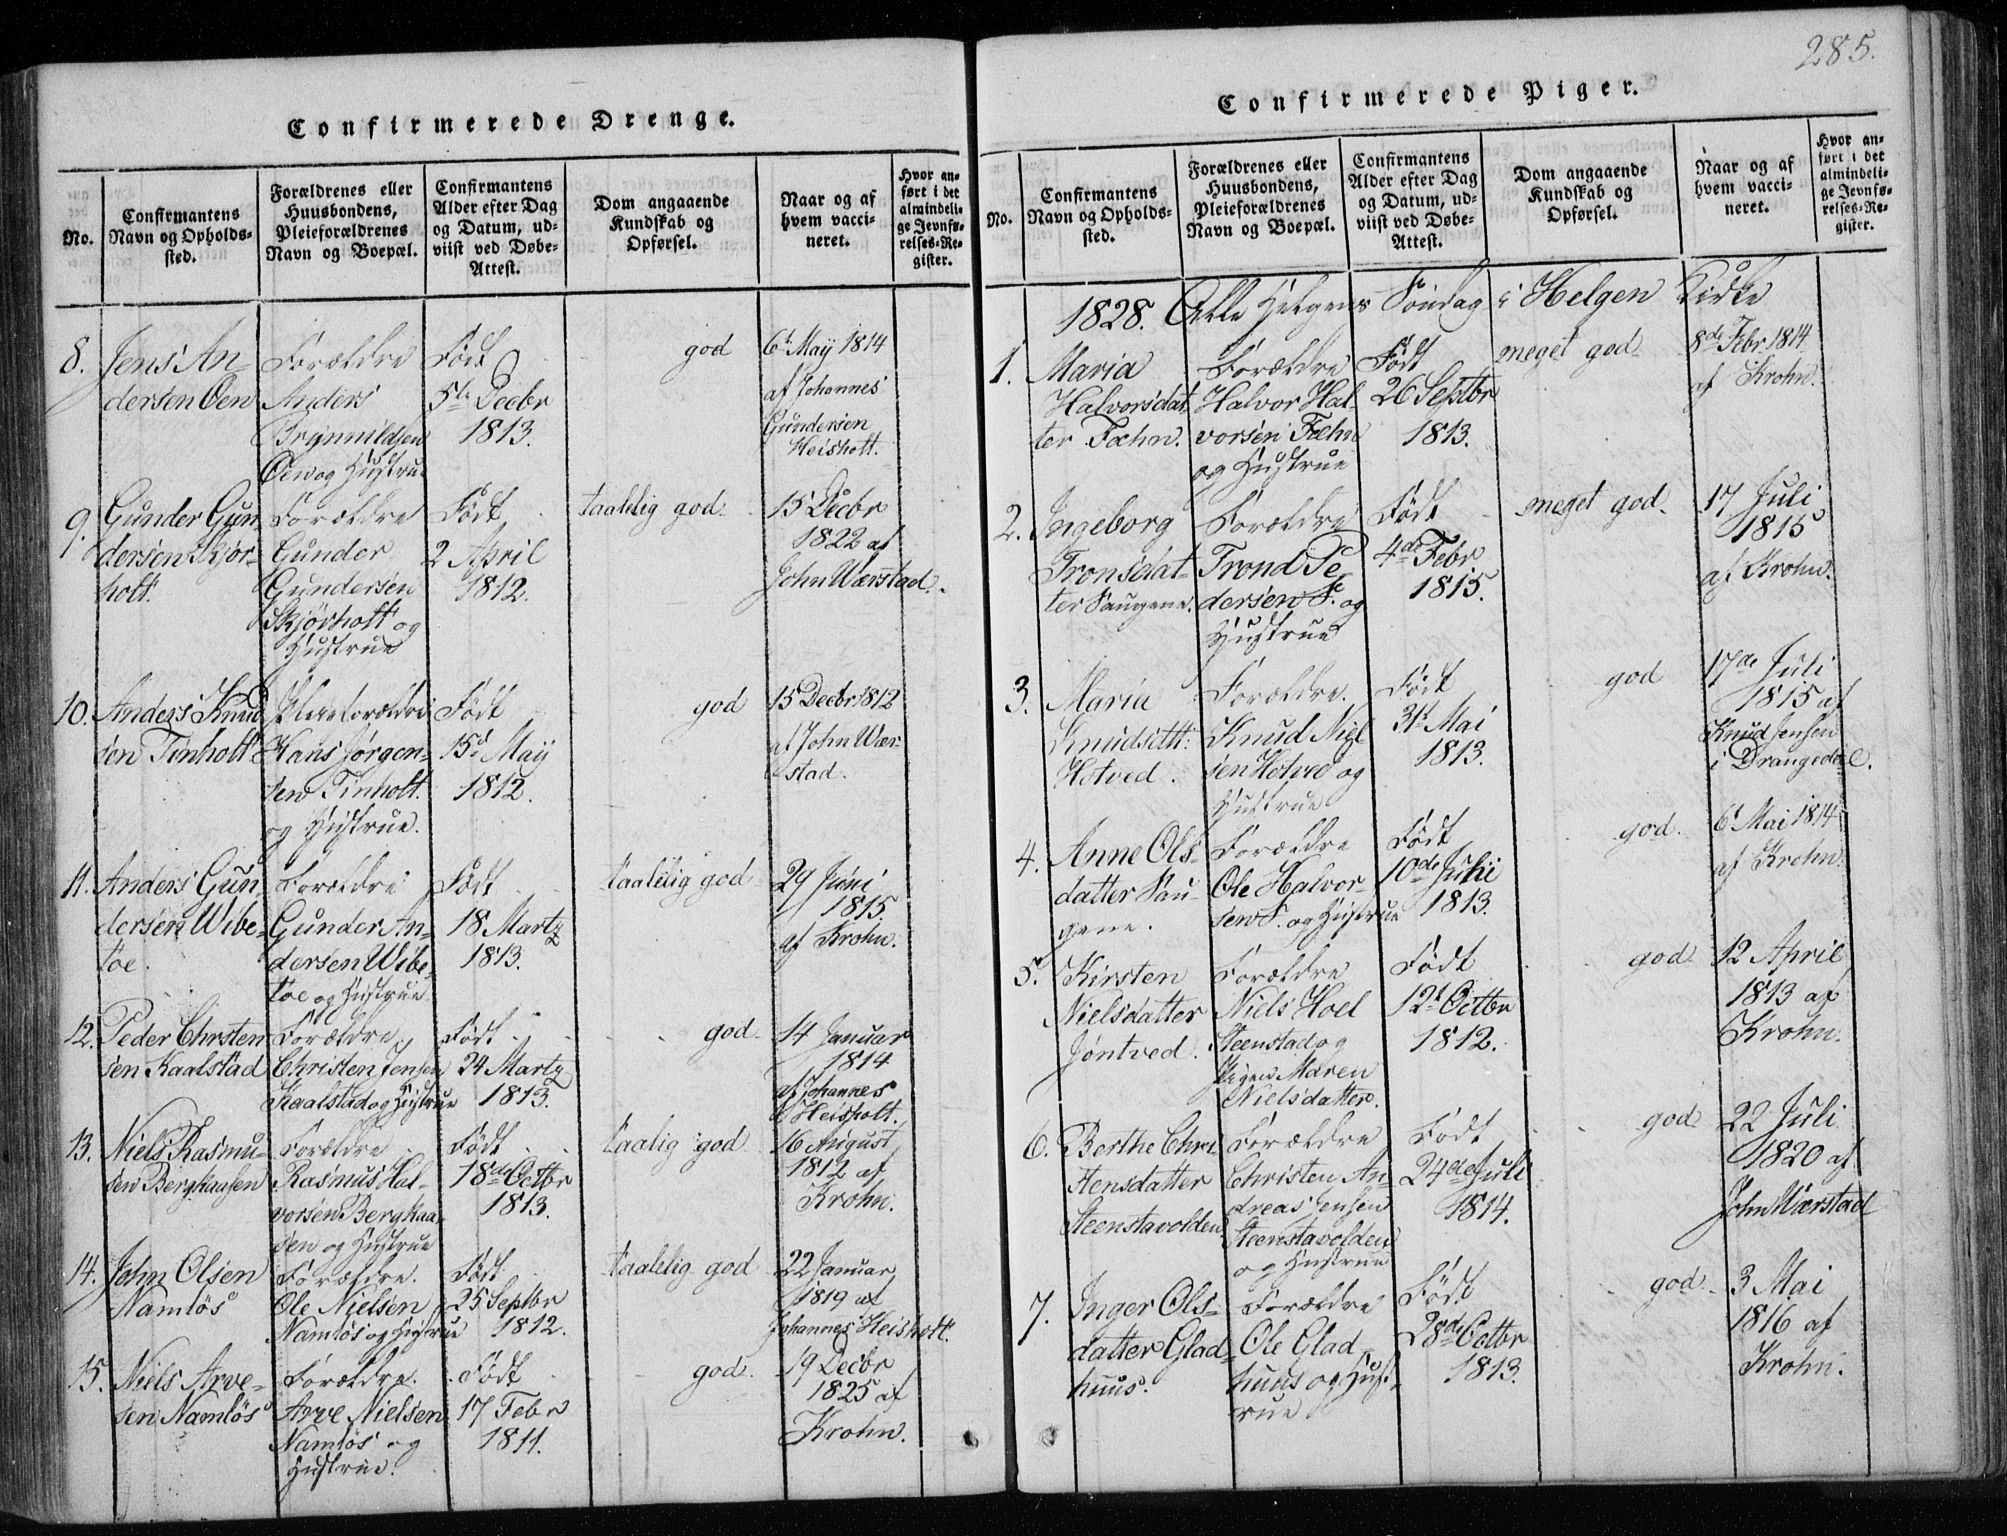 285.
Confirmerede Drenge.
No.
Confirmantens Navn og Opholdssted.
Forældrenes eller Huusbondens, Pleieforældrenes Navn og Boepæl.
Confirmantens Alder efter Dag og Datum, udviist ved Døbe-Attest.
Dom angaaende Kundskab og Opførsel.
Naar og af hvem vaccineret.
Hvor anført i det almindelige Jevnførelses-Register.
8.
Jens An-
dersen Oen
Forældre
Anders
Brynnildsen
Oen og Hustrue
Født
5te Decbr
1813.
god
6t Maij 1814
af Johannes
Gundersen
Heisholt.
9.
Gunder Gun-
dersen Skjör-
holt.
Forældre
Gunder
Gundersen
Skjörholt og
Hustrue
Født
2 April
1812.
taalelig god.
15 Decbr
1822 af
John Wærstad.
10.
Anders Knud
sen Tinholt
Pleieforældre
Hans Jörgen-
sen Tinholt.
og Hustrue.
Født
15d Maij
1812.
god
15 Decbr 1812
af John Wær-
stad.
11.
Anders Gun-
dersen Wibe-
toe.
Forældre
Gunder An-
dersen Wibe-
toe og Hustrue
Født
18 Martz
1813.
taalelig god
29 Juni
1815.
af Krohn.
12.
Peder Chrsten
sen Kaalstad
Forældre
Christen Jensen
Kaalstad og Hustrue
Født
24 Martz
1813.
god
14 Januar
1814
af Johannes
Heisholt.
13.
Niels Rasmu-
sen Berghaasen
Forældre
Rasmus Hal-
vorsen Berghaa-
sen og Hustrue
Født
18de Octbr
1813.
taalig god
16 August
1812 af
Krohn.
14.
John Olsen
Namlös
Forældre.
Ole Nielsen
Namlös og Hustrue
Født
25 Septbr
1812.
taalelig god
22 Januar
1819 af
Johannes Heisholt.
15.
Niels Arve-
sen Namlös
Forældre.
Arve Nielsen
Namlös og
Hustrue.
Født
17 Febr
1811.
god.
19 Decbr
1825 af
Krohn.
Confirmerede Piger.
No.
Confirmantens Navn og Opholdssted.
Forældrenes eller Huusbondens, Pleieforældrenes Navn og Boepæl.
Confirmantens Alder efter Dag og Datum, udviist ved Døbe-Attest.
Dom angaaende Kundskab og Opførsel.
Naar og af hvem vaccineret.
Hvor anført i det almindelige Jevnførelses-Register.
1828. Alle Helgens Söndag i Helgen Kirke
1.
Maria
Halvorsdat
ter Fæhn.
Forældre
Halvor Hal-
vorsen Fæhn
og Hustrue
Født
26 Septbr
1813.
meget god
8de Febr. 1814
af Krohn.
2.
Ingeborg
Tronsdat-
ter Saugene.
Forældre
Trond Pe-
dersen S. og
Hustrue
Født
4de Febr
1815.
meget god.
17 Juli
1815
af Krohn.
3.
Maria
Knudsdtt:
Hotved.
Forældre.
Knud Niel
sen Hotved og
Hustrue
Født
31t Mai
1813.
god
17de Juli
1815 af
Knud Jensen
i Drangedal.
4.
Anne Ols-
datter Sau-
gene.
Forældre
Ole Halvor-
sen S. og Hustrue
Født
10de Julii
1813.
god.
6t Mai 1814
af Krohn.
5.
Kirsten
Nielsdatter
Jøntved.
Forældre
Niels Hoel
Steenstad og
Pigen Maren
Nielsdatter.
Født
12t Octbr
1812.
god
12 April
1813 af
Krohn.
6.
Berthe Chri
stensdatter
Steenstavolden
Forældre
Christen An-
dreas Jensen
Steenstavolden
og Hustrue
Født
24de Juli
1814.
god
22 Juli
1820 af
John Wærstad
7.
Inger Ols-
datter Glad-
huus.
Forældre
Ole Glad-
huus og Hust-
rue
Født
28de Octbr
1813.
god.
3 Mai
1816 af
Krohn.